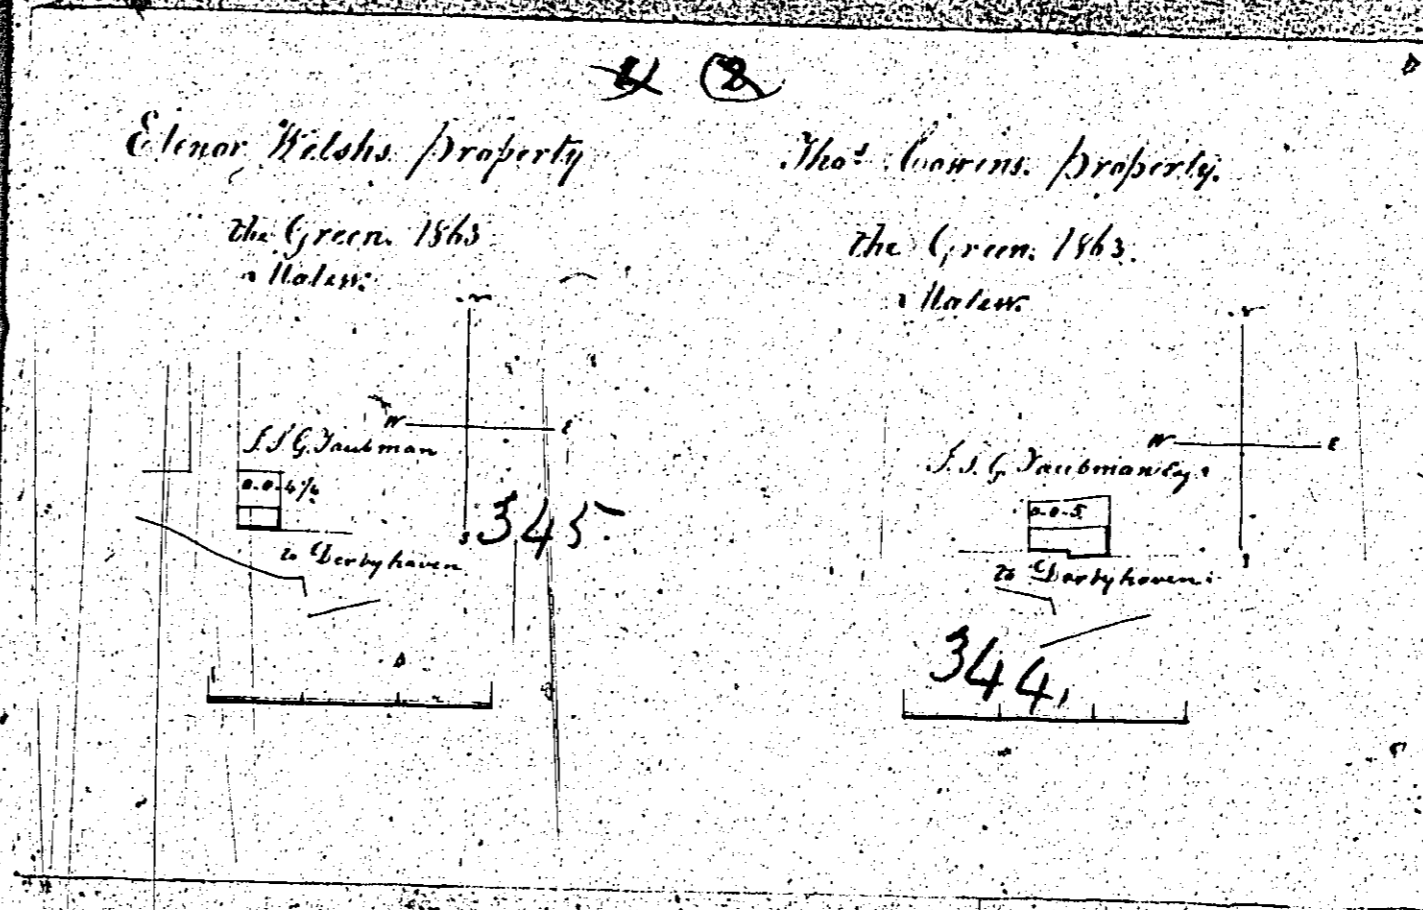 2
Elenor Welshs Property
the Green. 1863
Malew.
N
W E
S
J. S. G. Taubman
0.0.4¼
to Derbyhaven
345.
Thos. Cowens. Property.
the Green. 1863.
Malew.
N
W E
S
J. S. G. Taubman Esqr
0.0.5
to Derbyhaven.
344.